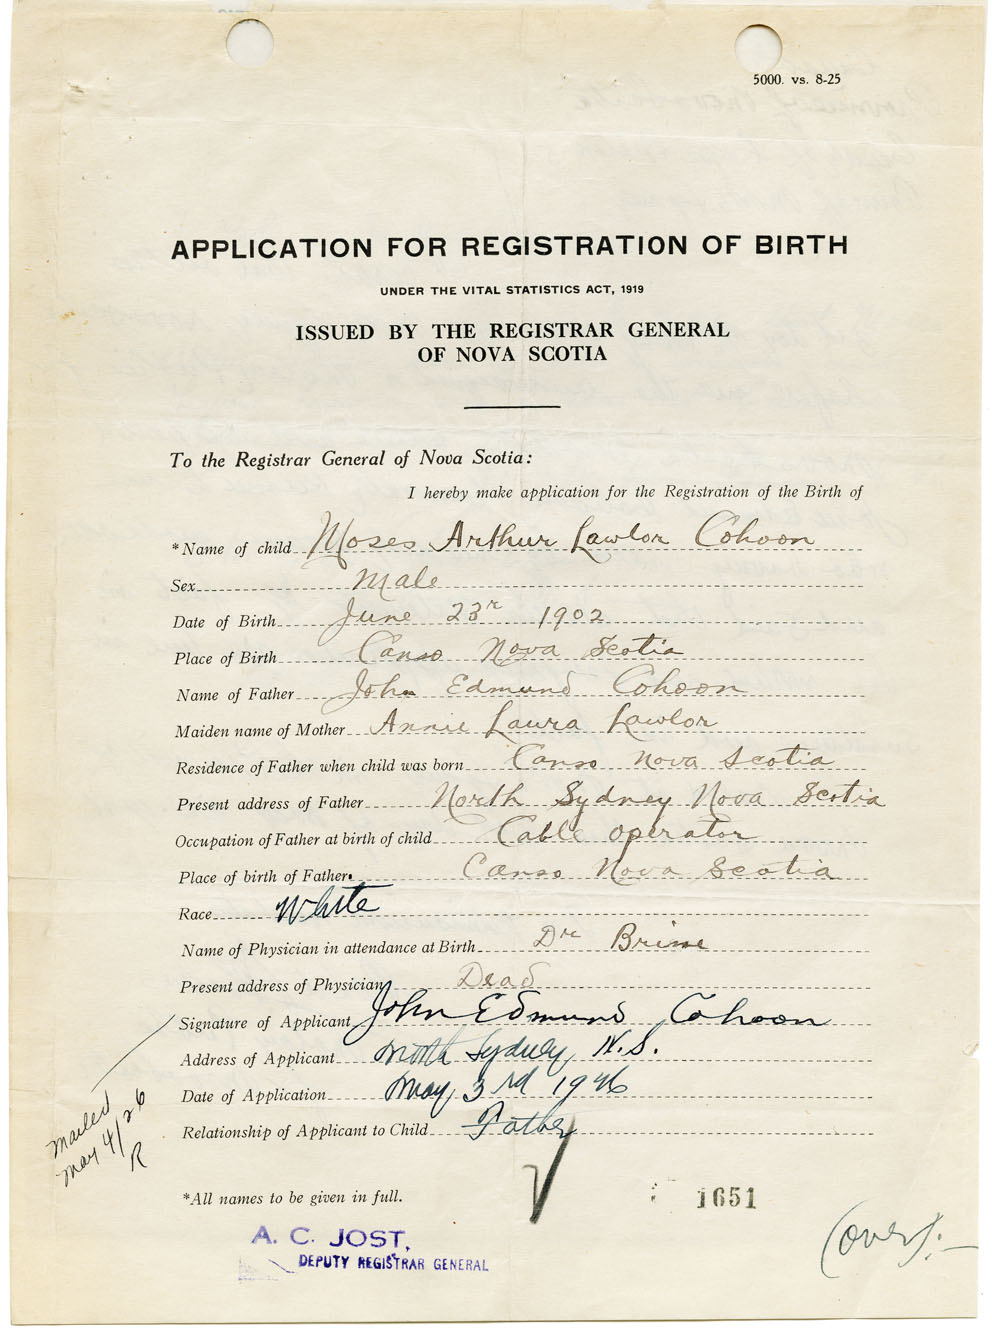 5000. vs. 8-25
APPLICATION FOR REGISTRATION OF BIRTH
UNDER THE VITAL STATISTICS ACT, 1919
ISSUED BY THE REGISTRAR GENERAL
OF NOVA SCOTIA
To the Registrar General of Nova Scotia:
I hereby make application for the Registration of the Birth of
*Name of child Moses Arthur Lawlor Cohoon
Sex Male
Date of Birth June 23r 1902
Place of Birth Canso Nova Scotia
Name of Father John Edmund Cohoon
Maiden name of Mother Annie Laura Lawlor
Residence of Father when child was born Canso Nova Scotia
Present address of Father North Sydney Nova Scotia
Occupation of Father at birth of child Cable operator
Place of birth of Father. Canso Nova Scotia
Race White
Name of Physician in attendance at Birth Dr Brine
Present address of Physician Dead
Signature of Applicant John Edmund Cohoon
Address of Applicant North Sydney, N.S.
Date of Application May 3rd 1926
Relationship of Applicant to Child Father
mailed
May 4/26
R
*All names to be given in full.
1651
A. C. JOST,
DEPUTY REGISTRAR GENERAL
(over).